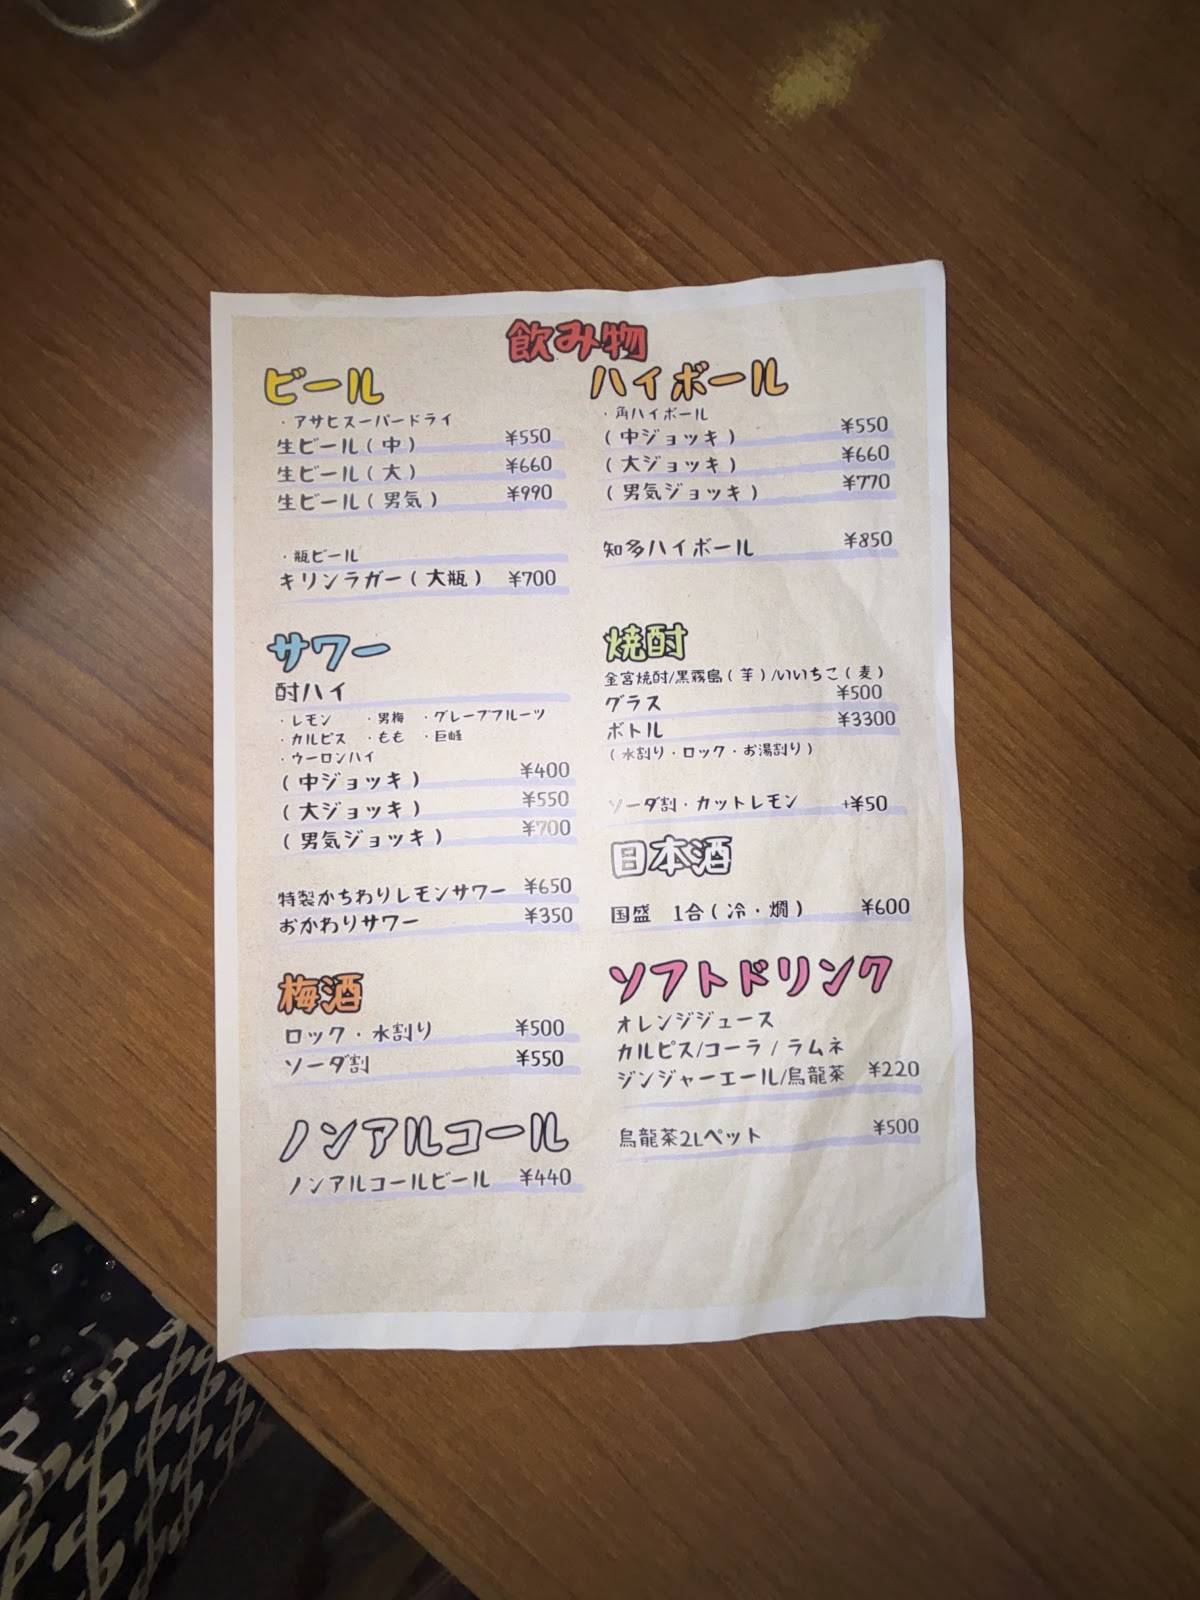 飲み物
ビール
・アサヒスーパードライ
生ビール(中) ¥550
生ビール(大) ¥660
生ビール(男気) ¥990
・瓶ビール
キリンラガー(大瓶) ¥700
サワー
酎ハイ
・レモン ・男梅 ・グレープフルーツ
・カルピス ・もも ・巨峰
・ウーロンハイ
(中ジョッキ) ¥400
(大ジョッキ) ¥550
(男気ジョッキ) ¥700
特製かちわりレモンサワー ¥650
おかわりサワー ¥350
梅酒
ロック・水割り ¥500
ソーダ割 ¥550
ノンアルコール
ノンアルコールビール ¥440
ハイボール
・角ハイボール
(中ジョッキ) ¥550
(大ジョッキ) ¥660
(男気ジョッキ) ¥770
知多ハイボール ¥850
焼酎
金宮焼酎/黒霧島(芋)/いいちこ(麦)
グラス ¥500
ボトル ¥3300
(水割り・ロック・お湯割り)
ソーダ割・カットレモン +¥50
日本酒
国盛 1合(冷・燗) ¥600
ソフトドリンク
オレンジジュース
カルピス/コーラ/ラムネ
ジンジャーエール/烏龍茶 ¥220
烏龍茶2Lペット ¥500